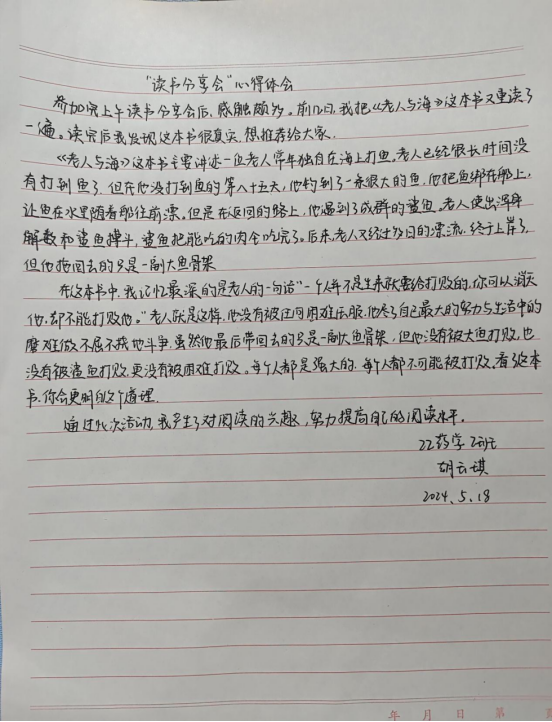 “读书分享会”心得体会
参加完上午读书分享会后，感触颇多。前几日，我把《老人与海》这本书又重读了
一遍。读完后我发现这本书很真实，想推荐给大家。
《老人与海》这本书主要讲述一位老人常年独自在海上打鱼，老人已经很长时间没
有打到鱼了，但在他没打到鱼的第八十五天，他钓到了一条很大的鱼，他把鱼绑在船上，
让鱼在水里随着船往前漂，但是在返回的路上，他遇到了成群的鲨鱼。老人使出浑身
解数和鲨鱼搏斗，鲨鱼把能吃的肉全吃完了。后来，老人又经过多日的漂流，终于上岸了，
但他拖回去的只是一副大鱼骨架
在这本书中，我记忆最深的是老人的一句话“一个人并不是生来就要给打败的，你可以消灭
他，却不能打败他。”老人就是这样，他没有被任何困难压服，他尽了自己最大的努力与生活中的
磨难做不屈不挠地斗争，虽然他最后带回去的只是一副大鱼骨架，但他没有被大鱼打败，也
没有被鲨鱼打败，更没有被困难打败。每个人都是强大的，每个人都不可能被打败，看了这本
书，你会更明白这个道理。
通过此次活动，我产生了对阅读的兴趣，努力提高自己的阅读水平。
22药学2班
胡云琪
2024.5.18
年 月 日 第